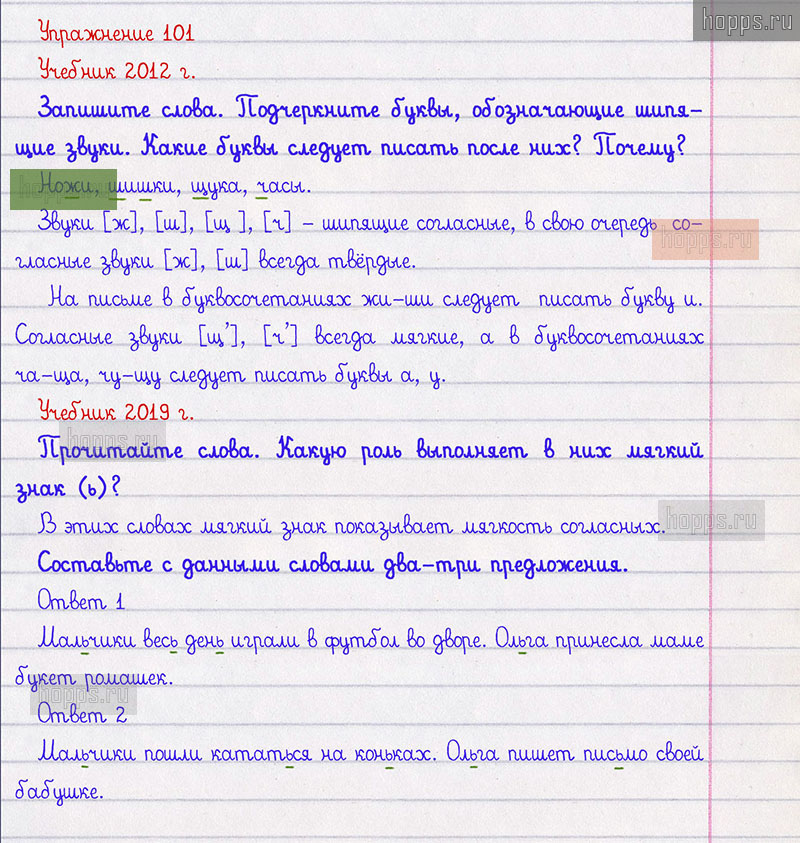 hopps.ru
Упражнение 101
Учебник 2012 г.
Запишите слова. Подчеркните буквы, обозначающие шипя-
щие звуки. Какие буквы следует писать после них? Почему?
hopps.ru
Ножи, шишки, щука, часы.
Звуки [ж], [ш], [щ ], [ч] – шипящие согласные, в свою очередь со-
hopps.ru
гласные звуки [ж], [ш] всегда твёрдые.
На письме в буквосочетаниях жи-ши следует писать букву и.
Согласные звуки [щ’], [ч’] всегда мягкие, а в буквосочетаниях
ча-ща, чу-щу следует писать буквы а, у.
Учебник 2019 г.
hopps.ru
Прочитайте слова. Какую роль выполняет в них мягкий
знак (ь)?
В этих словах мягкий знак показывает мягкость согласных.
hopps.ru
Составьте с данными словами два-три предложения.
Ответ 1
Мальчики весь день играли в футбол во дворе. Ольга принесла маме
букет ромашек.
hopps.ru
Ответ 2
Мальчики пошли кататься на коньках. Ольга пишет письмо своей
бабушке.